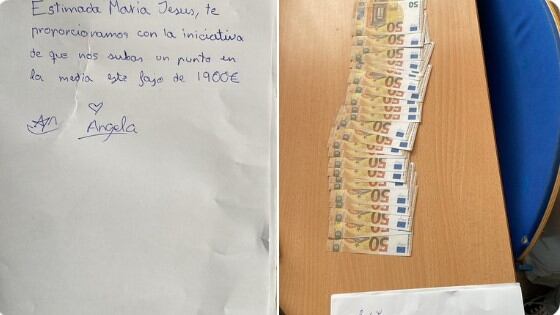 Estimada Maria Jesus, te
proporcionamos con la iniciativa
de que nos subas un punto en
la media este fajo de 1900€
Angela
50
50
50
50
50
50
50
50
50
50
50